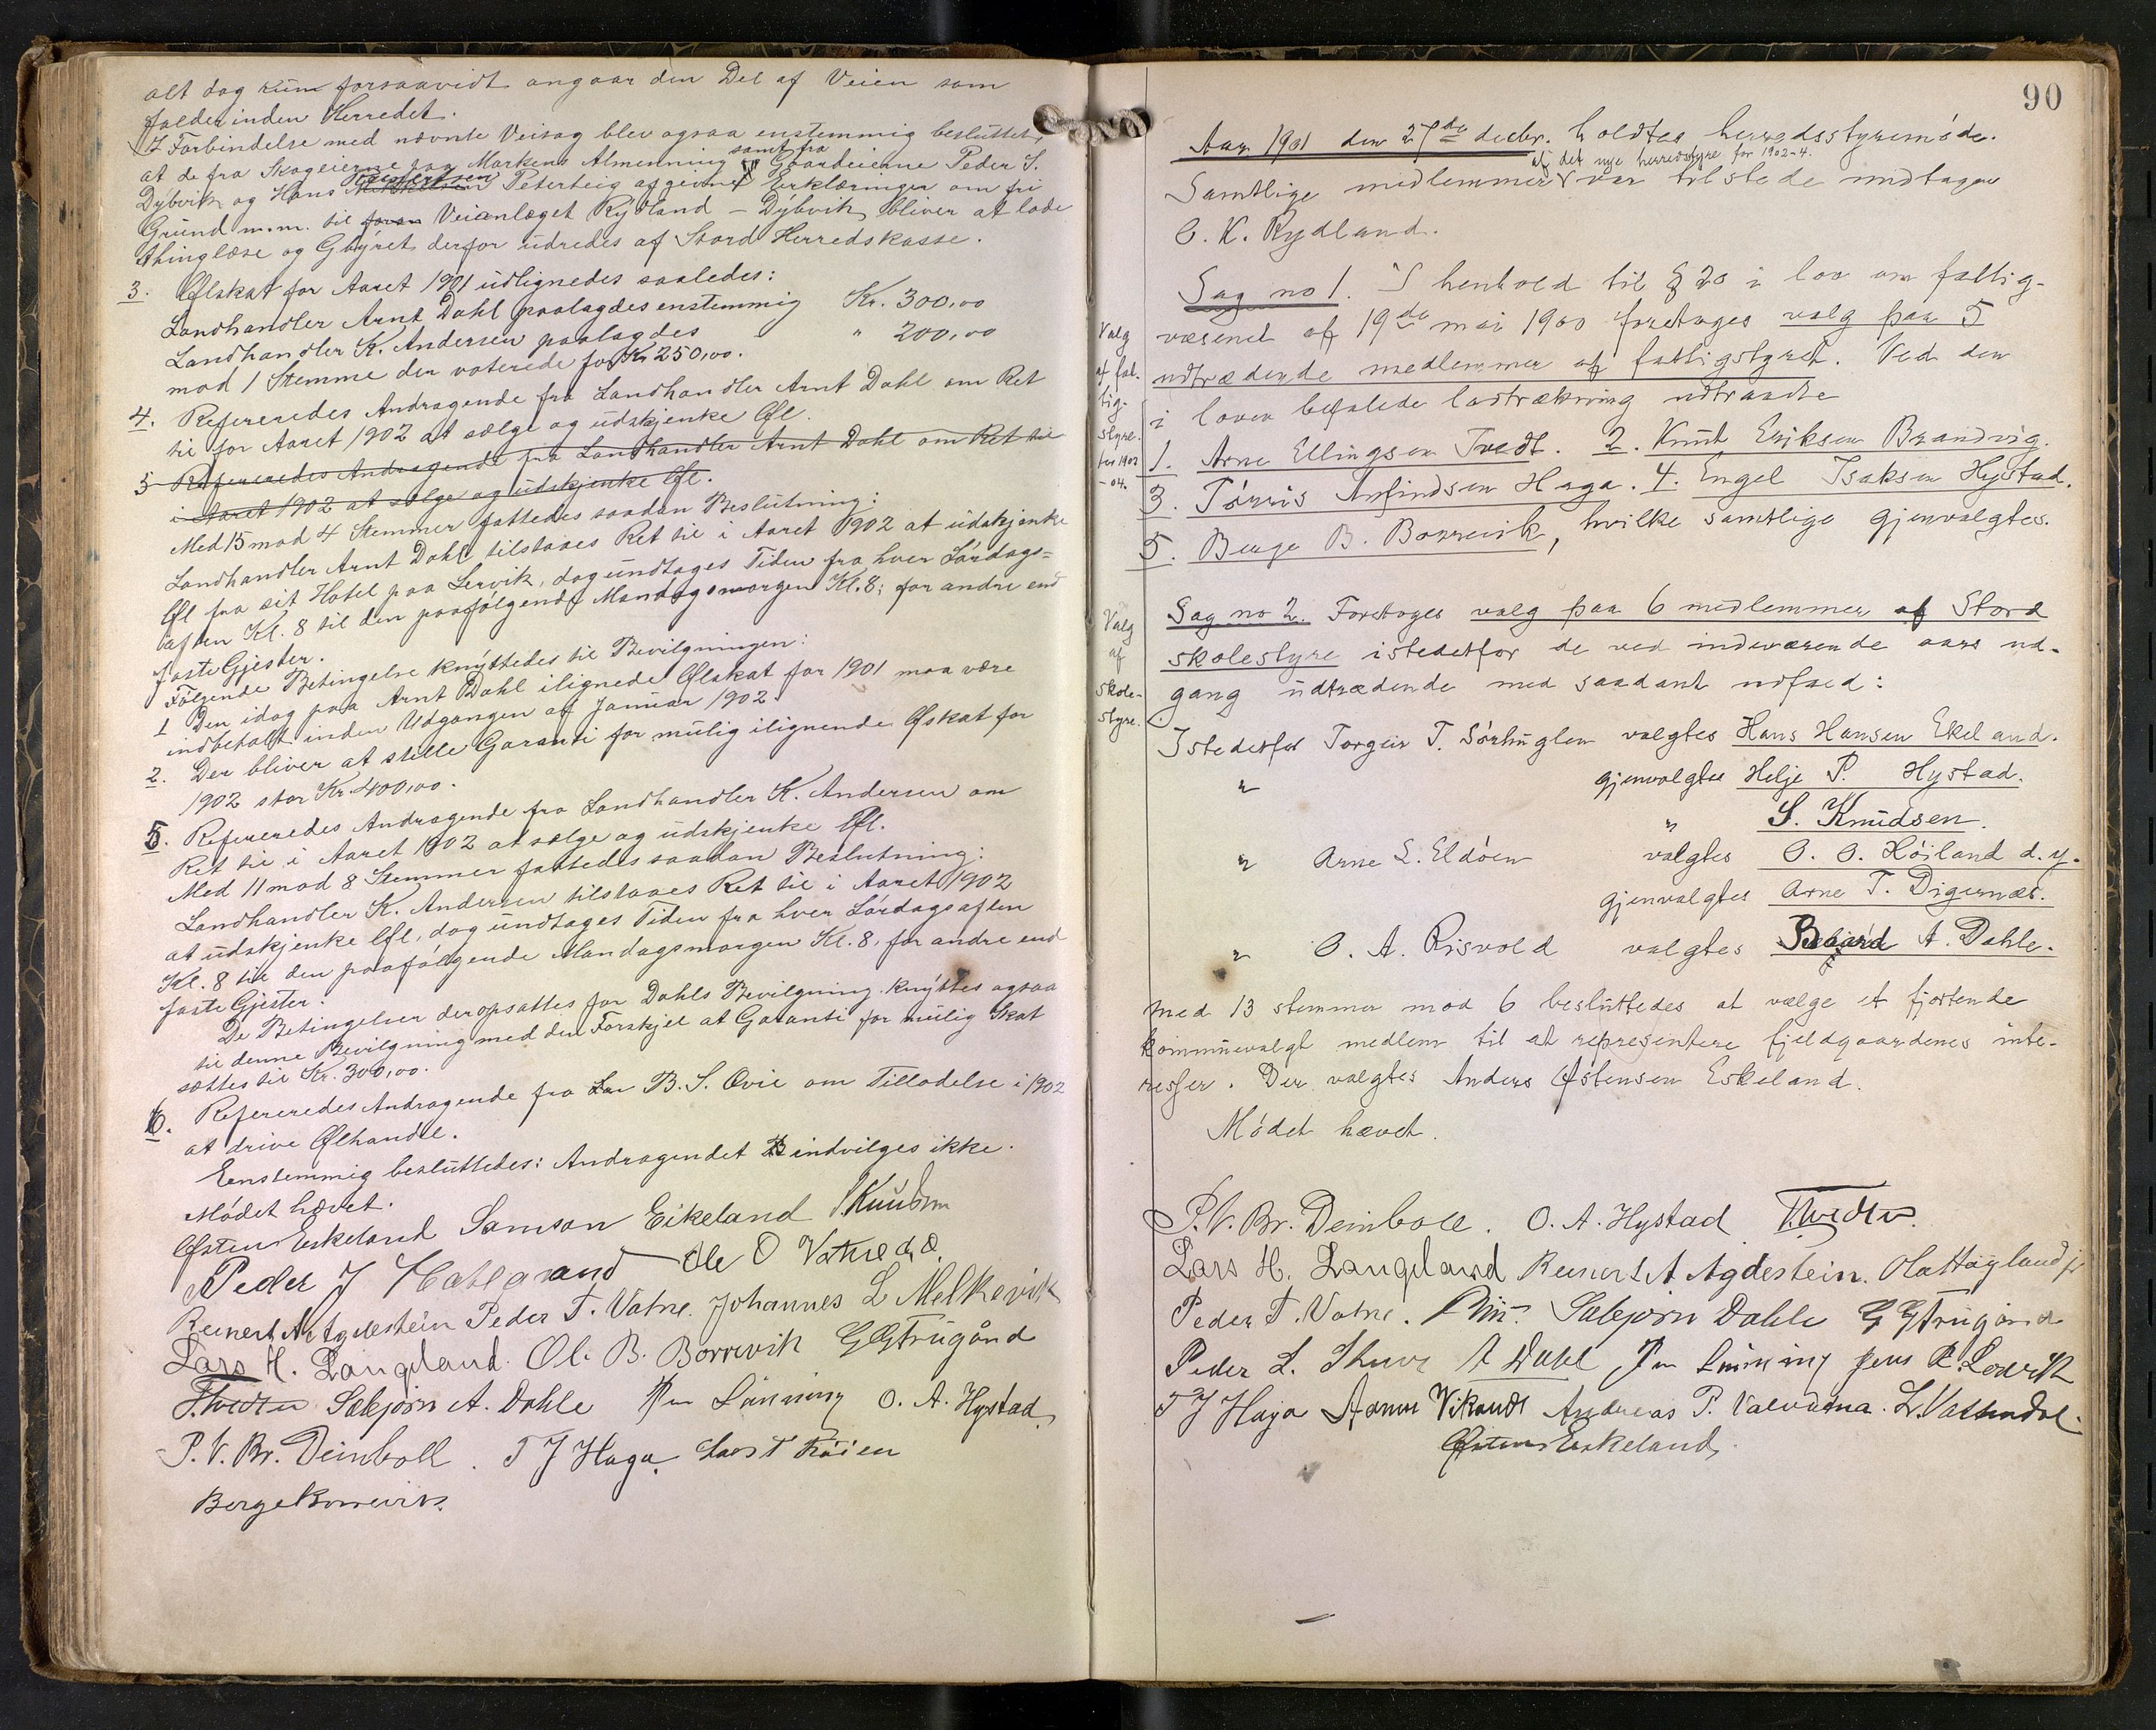 alt dog kun forsaavidt angaar den Del af Veien som
falder inden Herredet.
I Forbindelse med nævnte Veisag blev ogsaa enstemmig besluttet,
at de fra Skogeierne paa Markens Almenning samt fra Gaardeierne Peder S.
Dybvik og Hans Peterteig afgivne Erklæringer om fri
Grund m.m. til Veianlæget Rydland - Dybvik bliver at lade
thinglæse og Gbyret derfor udredes af Stord Herredskasse.
3. Ølskat for Aaret 1901 udlignedes saaledes:
Landhandler Arnt Dahl paalagdes enstemmig Kr. 300,00
Landhandler K. Andersen paalagdes " 200,00
mod 1 Stemme der voterede for Kr 250,00.
4. Refereredes Andragende fra Landhandler Arnt Dahl om Ret
til for Aaret 1902 at sælge og udskjenke Øl.
5 Refereredes Andragende fra Landhandler Arnt Dahl om Ret til
i Aaret 1902 at sælge og udskjenke Øl.
Med 15 mod 4 Stemmer fattedes saadan Beslutning:
Landhandler Arnt Dahl tilstaaes Ret til i Aaret 1902 at udskjenke
Øl fra sit Hotel paa Lervik, dog undtages Tiden fra hver Lørdags=
aften Kl. 8 til den paafølgende Mandagsmorgen Kl. 8; for andre end
faste Gjester.
Følgende Betingelse knyttedes til Bevilgningen:
1 Den idag paa Arnt Dahl ilignede Ølskat for 1901 maa være
indbetalt inden Udgangen af Januar 1902
2. Der bliver at stille Garanti for mulig ilignende Ølskat for
1902 stor Kr. 400,00.
5. Refereredes Andragende fra Landhandler K. Andersen om
Ret til i Aaret 1902 at sælge og udskjenke Øl.
Med 11 mod 8 Stemmer fattedes saadan Beslutning:
Landhandler K. Andersen tilstaaes Ret til i Aaret 1902
at udskjenke Øl, dog undtages Tiden fra hver Lørdagsaften
Kl. 8 til den paafølgende Mandagsmorgen Kl. 8, for andre end
faste Gjester.
De Betingelser der opsattes for Dahls Bevilgning knyttes ogsaa
til denne Bevilgning med den Forskjel at Garanti for mulig Skat
sættes til Kr. 300,00.
6. Refereredes Andragende fra B. S. Ovie om Tilladelse i 1902
at drive Ølhandel.
Enstemmig besluttedes: Andragendet indvilges ikke.
Mødet hævet.
Østen Eskeland Samson Eikeland S Knudsen
Peder J Ole O Vatne
Reinert A Agdestein Peder T. Vatne. Johannes L Melkevik
Lars H. Langeland. Ol. B. Borrevik G G Trugånd
T. Hvedten Sæbjørn A. Dahle Lünning O. A. Hystad
P. V. Br. Deinboll. T J Haga. Lars T Røien
Børge Borrevik.
90
Aar 1901 den 27de decbr. holdtes herredsstyremøde.
af det nye herredsstyre for 1902-4.
Samtlige medlemmer var tilstede undtagen
O. K. Rydland.
Sag no 1. I henhold til § 20 i lov om fattig-
væsenet af 19de mai 1900 foretoges valg paa 5
udtrædende medlemmer af fattigstyret. Ved den
i loven befalede lodtrækning udtraadte
1. Arne Ellingsen Tvedt. 2. Knut Eriksen Brandvig.
3. Tørris Arfindsen Haga. 4. Engel Isaksen Hystad.
5. Berge B. Borrevik, hvilke samtlige gjenvalgtes.
Valg
af fat-
tig-
styre.
for 1902
-04.
Sag no 2. Foretoges valg paa 6 medlemmer af Stord
skolestyre istedetfor de ved indeværende aars ud-
gang udtrædende med saadant udfaed:
Valg
af
skole-
styre.
Istedetfor Torgeir T. Sørhuglen valgtes Hans Hansen Ekeland.
" gjenvalgtes Helje P. Hystad.
" S. Knudsen.
" Arne L. Eldøen valgtes O. O. Høiland d. y.
gjenvalgtes Arne T. Digernæs.
" O. A. Risvold valgtes A. Dahle.
Med 13 stemmer mod 6 besluttedes at vælge et fjortende
kommunevalgt medlem til at representere fjeldgaardenes inte-
resser. Der valgtes Anders Østensen Eskeland.
Mødet hævet.
P. V. Br. Deinboll. O. A. Hystad T. Hvedten.
Lars H. Langeland Reinert A Agdestein. Ola Høyland
Peder T. Vatne. Sæbjørn Dahle G G Trugånd
Peder L. A Dahl Lünning Jens R. Leirvik
T J Haga Vikanes Andreas P. Valvatna. L. Vattendal.
Østen Eskeland